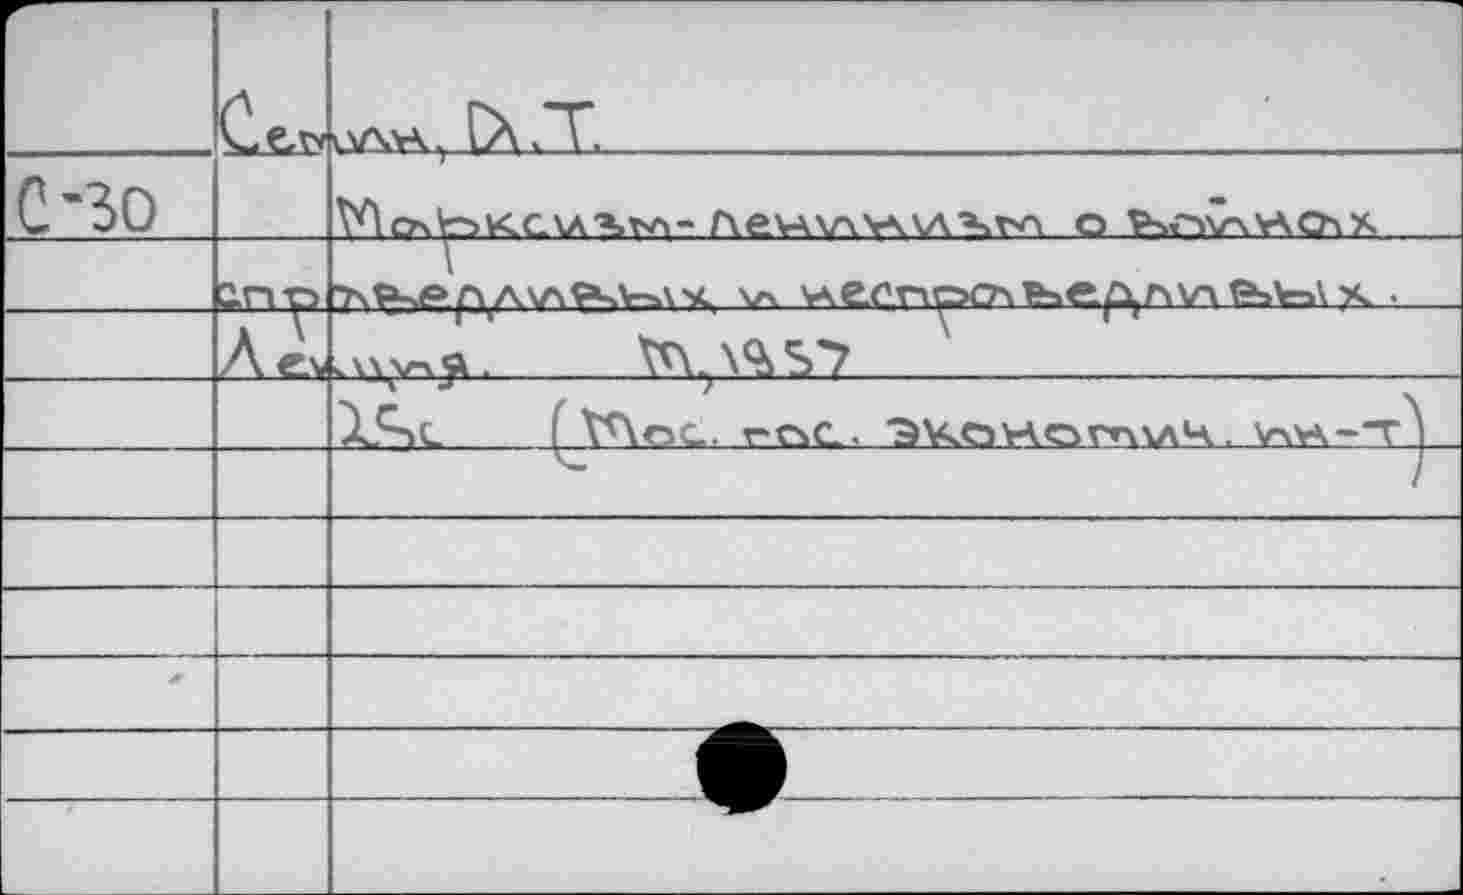 Семин, А.Т.
С-30
Марксизм-ленинизм о войнах
справедливых и несправедливых.
Лекция. М., 1957
25с (Мос. гос. экономич. ин-т)